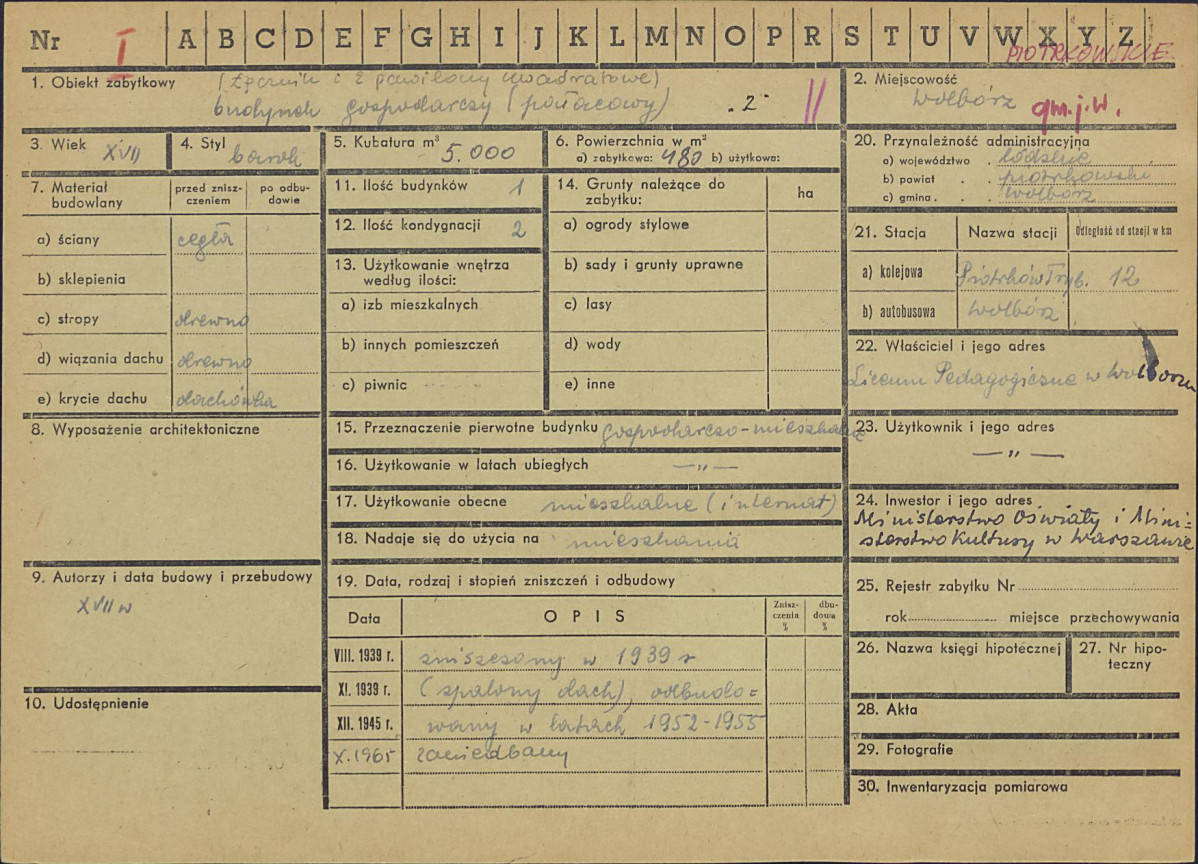 Nr I A B C D E F G H I J K L M N O P R S T U V W X Y Z
PIOTRKOWSKIE
1. Obiekt zabytkowy (łącznik i 2 pawilony kwadratowe)
budynek gospodarczy (pałacowy) „2" ||
2. Miejscowość
Wolbórz gm.j.w.
3. Wiek XVII
4. Styl barok
5. Kubatura m³ 5.000
6. Powierzchnia w m²
a) zabytkowa: 480 b) użytkowa:
7. Materiał budowlany
przed zniszczeniem
po odbudowie
a) ściany cegła
b) sklepienia
c) stropy drewno
d) wiązania dachu drewno
e) krycie dachu dachówka
8. Wyposażenie architektoniczne
9. Autorzy i data budowy i przebudowy
XVII w
10. Udostępnienie
11. Ilość budynków 1
12. Ilość kondygnacji 2
13. Użytkowanie wnętrza
według ilości:
a) izb mieszkalnych
b) innych pomieszczeń
c) piwnic
14. Grunty należące do
zabytku:
ha
a) ogrody stylowe
b) sady i grunty uprawne
c) lasy
d) wody
e) inne
15. Przeznaczenie pierwotne budynku gospodarczo-mieszkalne
16. Użytkowanie w latach ubiegłych —„—
17. Użytkowanie obecne mieszkalne (internat)
18. Nadaje się do użycia na mieszkania
19. Data, rodzaj i stopień zniszczeń i odbudowy
Data
OPIS
Zniszczenia %
dbudowa %
VIII. 1939 r. zniszczony w 1939 r
XI. 1939 r. (spalony dach), odbudo=
XII. 1945 r. wany w latach 1952-1955
X.1965 zaniedbany
20. Przynależność administracyjna
a) województwo . łódzkie
b) powiat . . piotrkowski
c) gmina . . . Wolbórz
21. Stacja
Nazwa stacji
Odległość od stacji w km
a) kolejowa Piotrków Tryb. 12
b) autobusowa Wolbórz
22. Właściciel i jego adres
Liceum Pedagogiczne w Wolborzu
23. Użytkownik i jego adres
—„—
24. Inwestor i jego adres
Ministerstwo Oświaty i Mini-
sterstwo Kultury w Warszawie
25. Rejestr zabytku Nr
rok miejsce przechowywania
26. Nazwa księgi hipotecznej
27. Nr hipo-
teczny
28. Akta
29. Fotografie
30. Inwentaryzacja pomiarowa